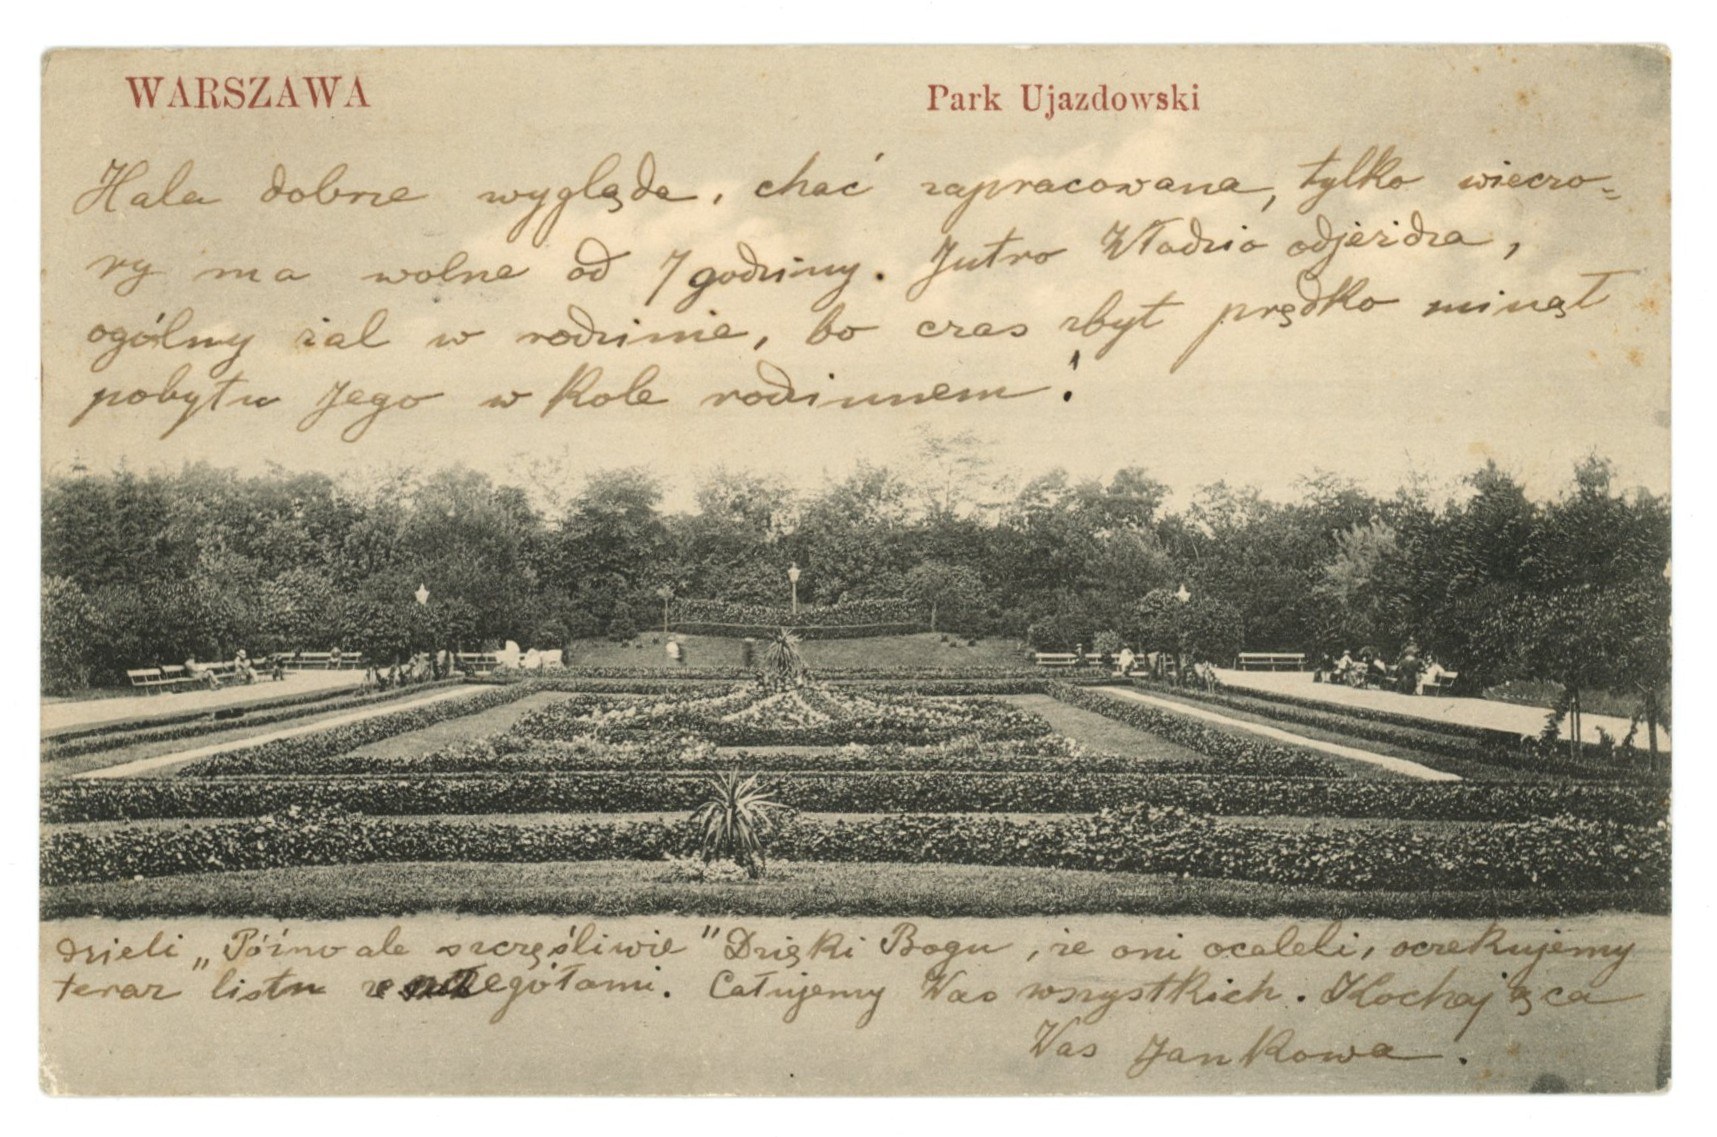 WARSZAWA Park Ujazdowski
Hala dobrze wygląda, choć zapracowana, tylko wieczo=
ry ma wolne od 7 godziny. Jutro Władzio odjeżdża,
ogólny żal w rodzinie, bo czas zbyt prędko minął
pobytu Jego w kole rodzinnem!
dzieli „Późno ale szczęśliwie" Dzięki Bogu, że oni ocaleli, oczekujemy
teraz listu z szczegółami. Całujemy Was wszystkich. Kochająca
Was Jankowa.